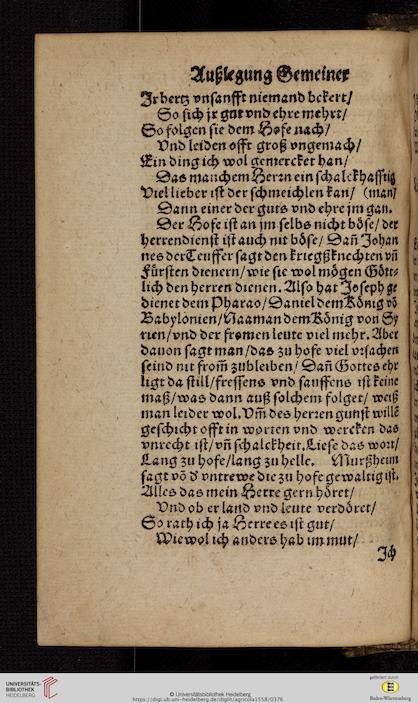 Außlegung Gemeiner
Ir hertz vnsanfft niemand bekert/
So sich jr gut vnd ehre mehrt/
So folgen sie dem Hofe nach/
Vnd leiden offt groß vngemach/
Ein ding ich wol gemercket han/
Das manchem Herrn ein schalckhafftig
Viel lieber ist der schmeichlen kan/ (man/
Dann einer der guts vnd ehre jm gan.
Der Hofe ist an jm selbs nicht böse/ der
herrendienst ist auch nit böse/ Dañ Johan
nes der Teuffer sagt den kriegßknechten vñ
Fürsten dienern/ wie sie wol mögen Gött⸗
lich den herren dienen. Also hat Joseph ge
dienet dem Pharao/ Daniel dem König võ
Babylonien/ Naaman dem König von Sy
rien/ vnd der fromen leute viel mehr. Aber
dauon sagt man/ das zu hofe viel vrsachen
seind nit from̃ zubleiben/ Dañ Gottes ehr
ligt da still/ fressens vnd sauffens ist keine
maß/ was dann auß solchem folget/ weiß
man leider wol. Vm̃ des herren gunst willẽ
geschicht offt in worten vnd wercken das
vnrecht ist/ vñ schalckheit. Liese das wort/
Lang zu hofe/ lang zu helle. Murßheim
sagt võ d' vntrewe die zu hofe gewaltig ist.
Alles das mein Herre gern höret/
Vnd ob er land vnd leute verdöret/
So rath ich ja Herre es ist gut/
Wiewol ich anders hab im mut/
Ich
UNIVERSITÄTS-
BIBLIOTHEK
HEIDELBERG
© Universitätsbibliothek Heidelberg
https://digi.ub.uni-heidelberg.de/diglit/agricola1558/0376
gefördert durch
Baden-Württemberg